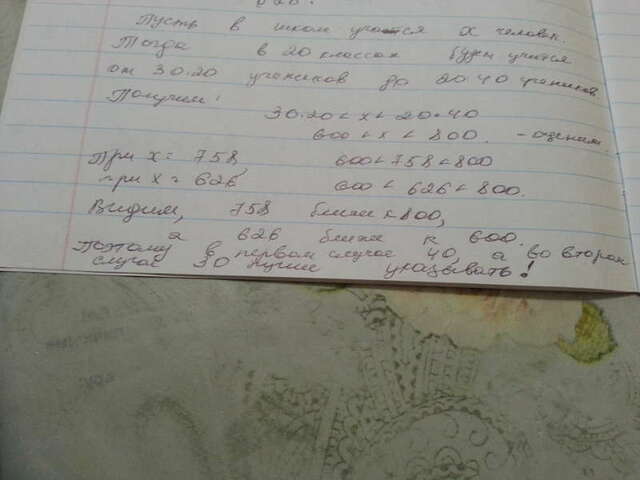 626.
Пусть в школе учатся x человек.
Тогда в 20 классах будут учится
от 30·20 учеников до 20·40 учеников
Получим:
30·20 < x < 20·40
600 < x < 800. - оценили
При x = 758, 600 < 758 < 800
при x = 626, 600 < 626 < 800.
Видим, 758 ближе к 800,
а 626 ближе к 600.
Поэтому в первом случае 40, а во втором
случае 30 лучше указывать!